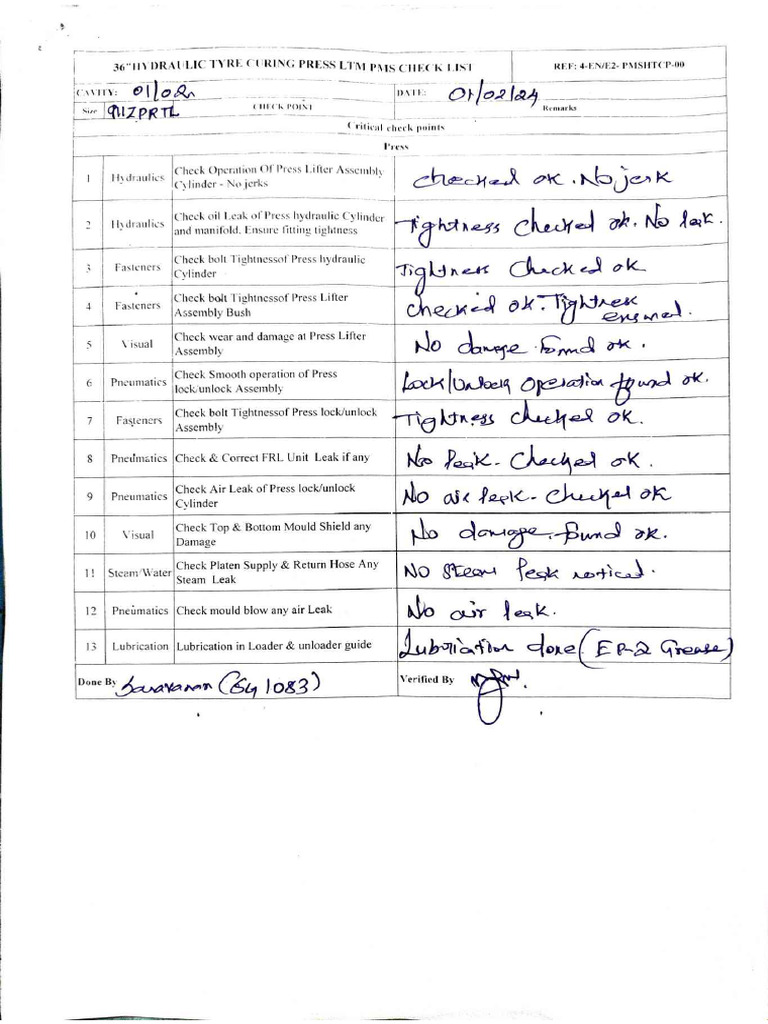 36"HYDRAULIC TYRE CURING PRESS LTM PMS CHECK LIST REF: 4-EN/E2- PMSHTCP-00
CAVITY: 01/02 DATE: 01/02/24
Size CHECK POINT Remarks
Critical check points
Press
1 Hydraulics Check Operation Of Press Lifter Assembly Cylinder - No jerks checked ok. No jerk
2 Hydraulics Check oil Leak of Press hydraulic Cylinder and manifold. Ensure fitting tightness Tightness checked ok. No leak.
3 Fasteners Check bolt Tightnessof Press hydraulic Cylinder Tightness checked ok
4 Fasteners Check bolt Tightnessof Press Lifter Assembly Bush checked ok. Tightness ensured.
5 Visual Check wear and damage at Press Lifter Assembly No damage found ok.
6 Pneumatics Check Smooth operation of Press lock/unlock Assembly Lock/unlock operation found ok.
7 Fasteners Check bolt Tightnessof Press lock/unlock Assembly Tightness checked ok.
8 Pneumatics Check & Correct FRL Unit Leak if any No leak - checked ok.
9 Pneumatics Check Air Leak of Press lock/unlock Cylinder No air leak - checked ok
10 Visual Check Top & Bottom Mould Shield any Damage No damage. found ok.
11 Steam/Water Check Platen Supply & Return Hose Any Steam Leak No steam leak noticed.
12 Pneumatics Check mould blow any air Leak No air leak.
13 Lubrication Lubrication in Loader & unloader guide Lubrication done (EP-2 Grease)
Done By Saravanan Verified By